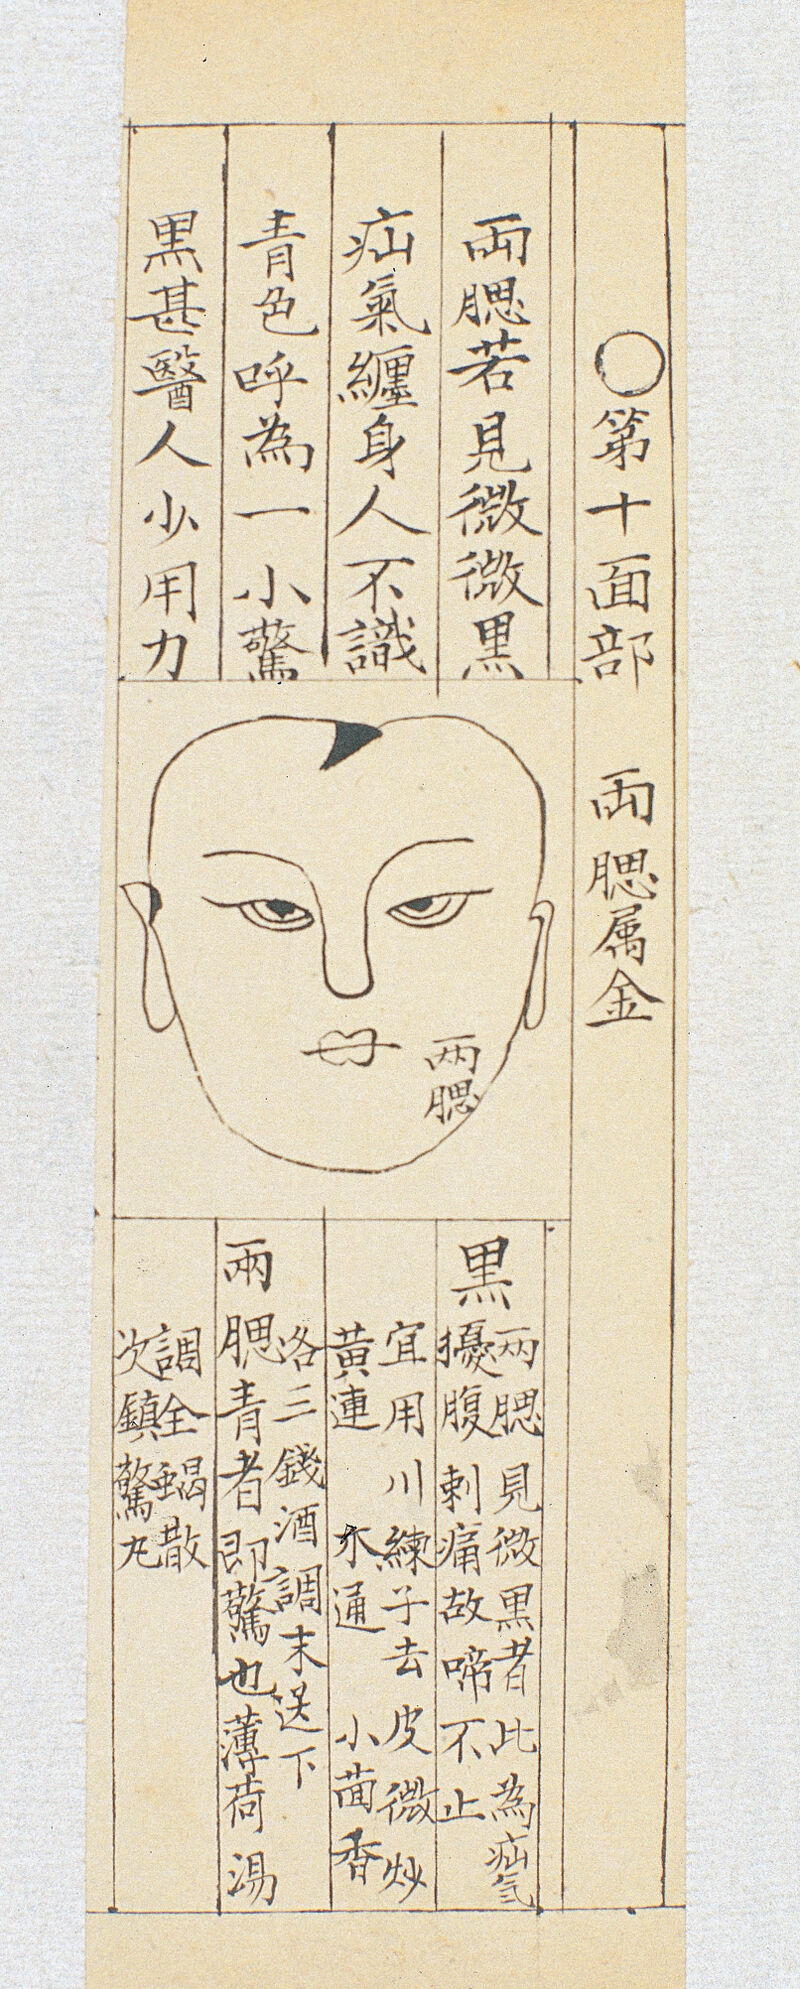 〇第十面部　兩腮属金
兩腮若見微微黒
疝氣纏身人不識
青色呼為一小驚
黒甚醫人少用力
兩腮
黒
兩腮見微黒者此為疝気
擾腹刺痛故啼不止
宜用川練子去皮微炒
黃連　木通　小茴香
各三錢酒調末送下
兩腮青者即驚也薄荷湯
調全蝎散
次鎮驚丸